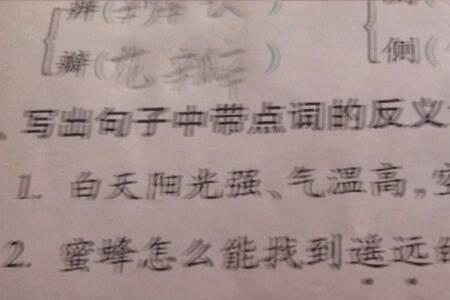 辨(
瓣(花瓣) 侧(
写出句子中带点词的反义
1. 白天阳光强、气温高,空
2. 蜜蜂怎么能找到遥远的